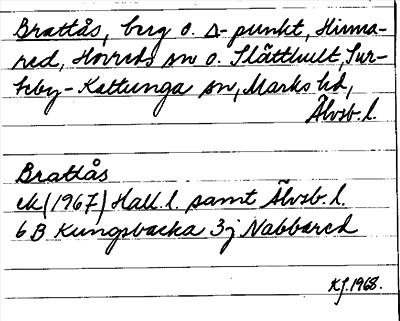 Brattås, berg o. Δ-punkt, Hinna-
red, Horreds sn o. Slätthult, Sur-
teby-Kattunga sn, Marks hd,
Älvsb. l.
Brattås
ek (1967) Hall. l. samt Älvsb. l.
6B Kungsbacka 3j Nabbared
KJ. 1968.